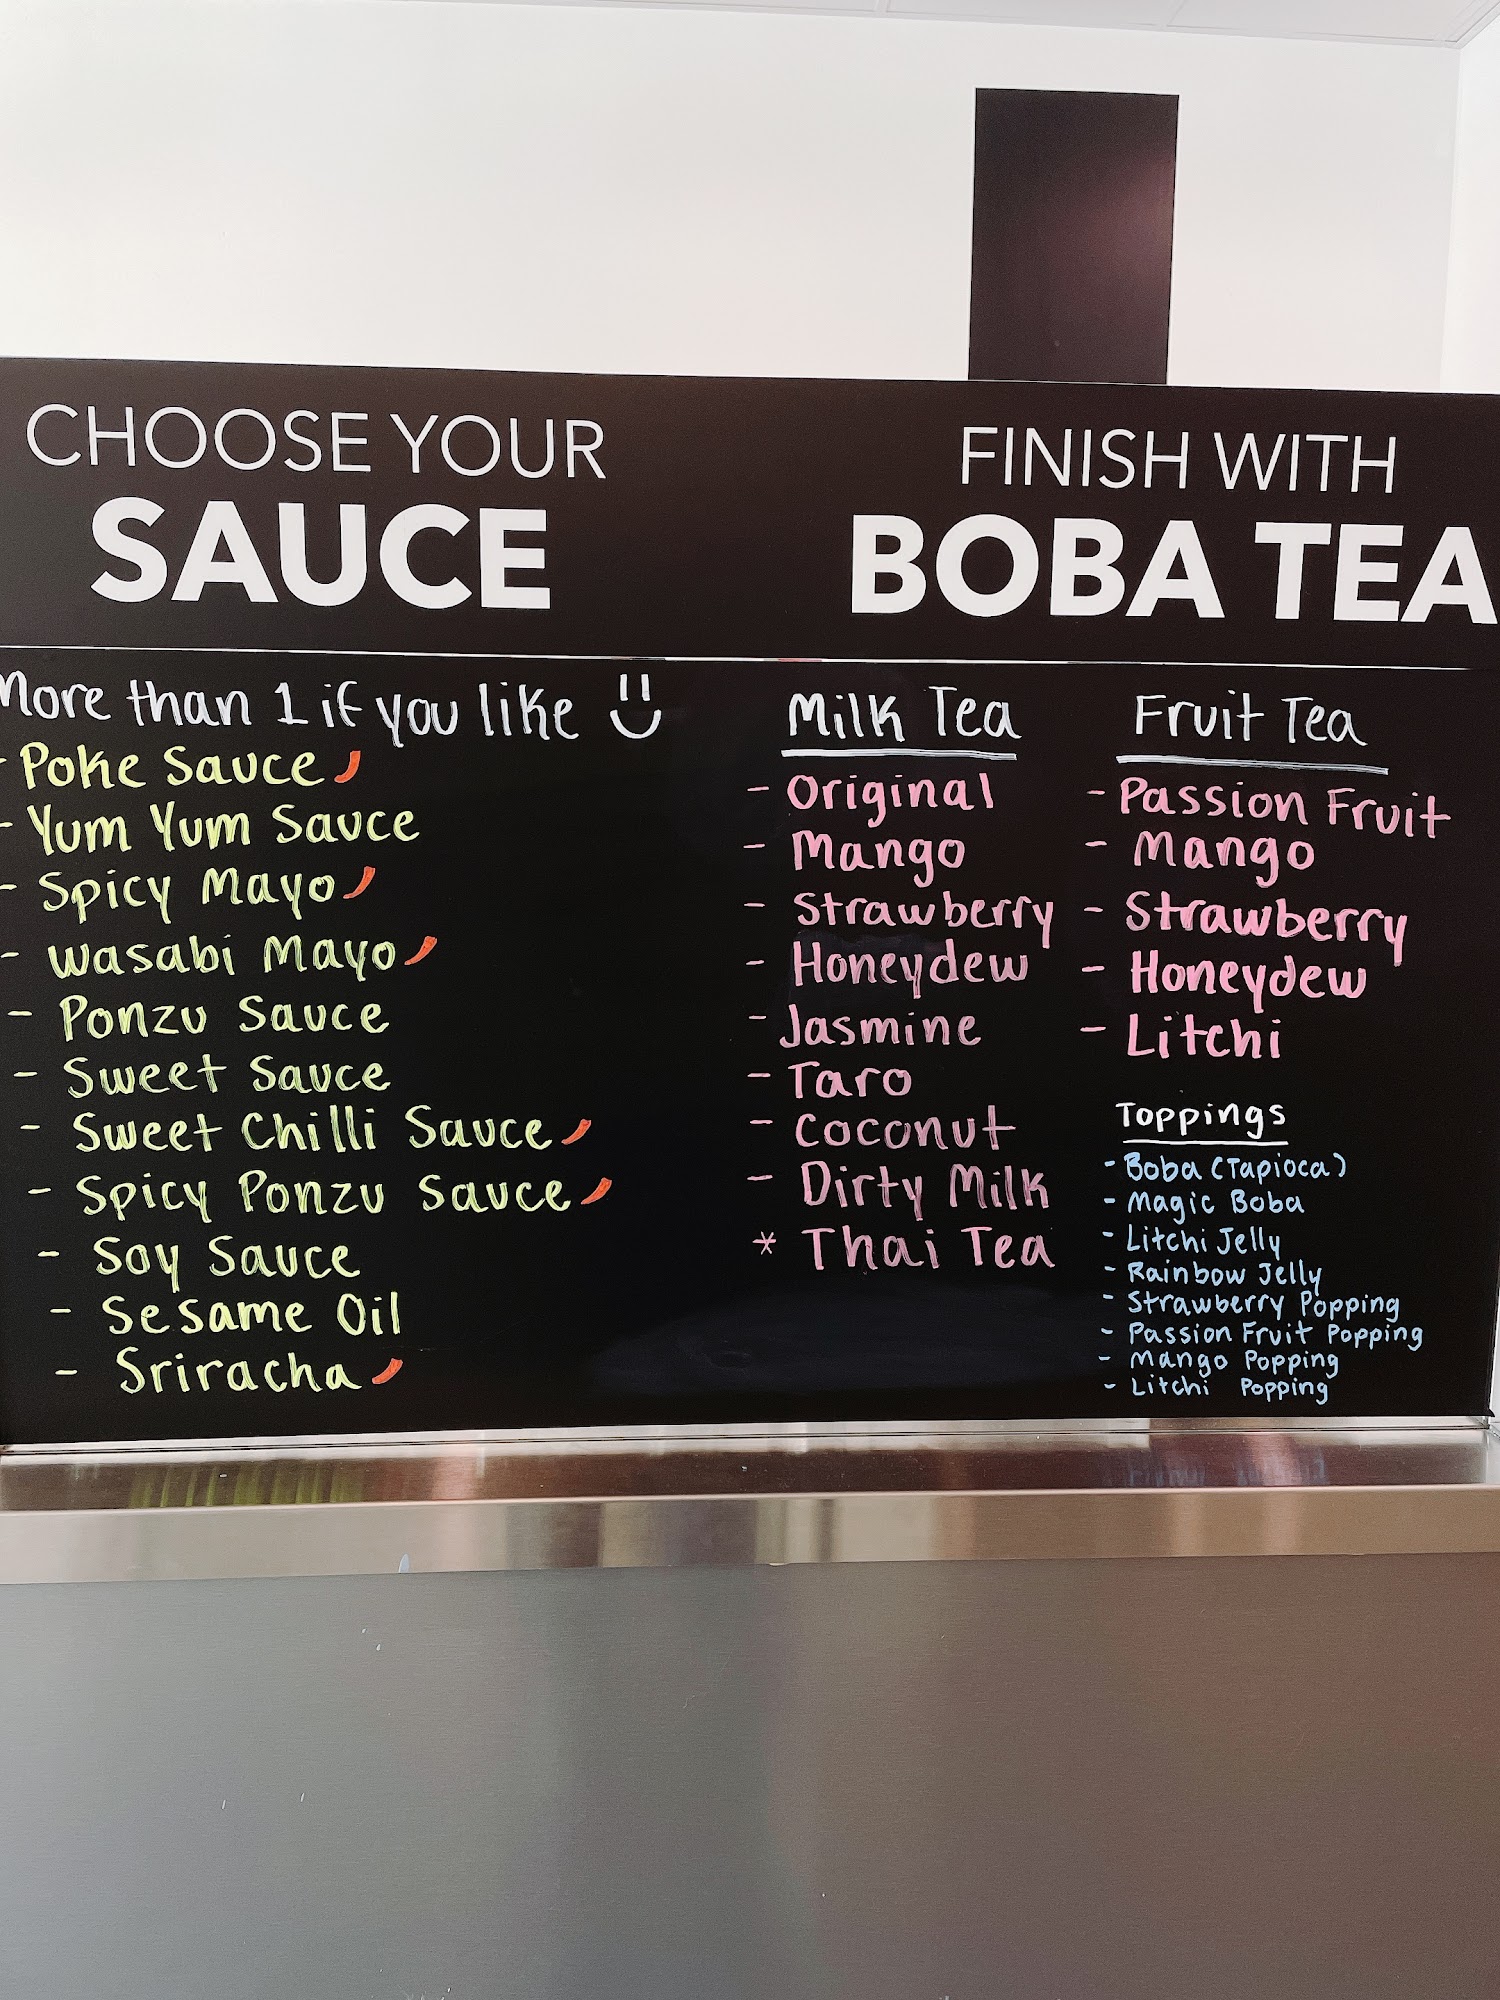 CHOOSE YOUR
SAUCE
More than 1 if you like
- Poke Sauce
- Yum Yum Sauce
- Spicy Mayo
- Wasabi Mayo
- Ponzu Sauce
- Sweet Sauce
- Sweet Chilli Sauce
- Spicy Ponzu Sauce
- Soy Sauce
- Sesame Oil
- Sriracha
FINISH WITH
BOBA TEA
Milk Tea
- Original
- Mango
- Strawberry
- Honeydew
- Jasmine
- Taro
- Coconut
- Dirty Milk
* Thai Tea
Fruit Tea
- Passion Fruit
- Mango
- Strawberry
- Honeydew
- Litchi
Toppings
- Boba (Tapioca)
- Magic Boba
- Litchi Jelly
- Rainbow Jelly
- Strawberry Popping
- Passion Fruit Popping
- Mango Popping
- Litchi Popping